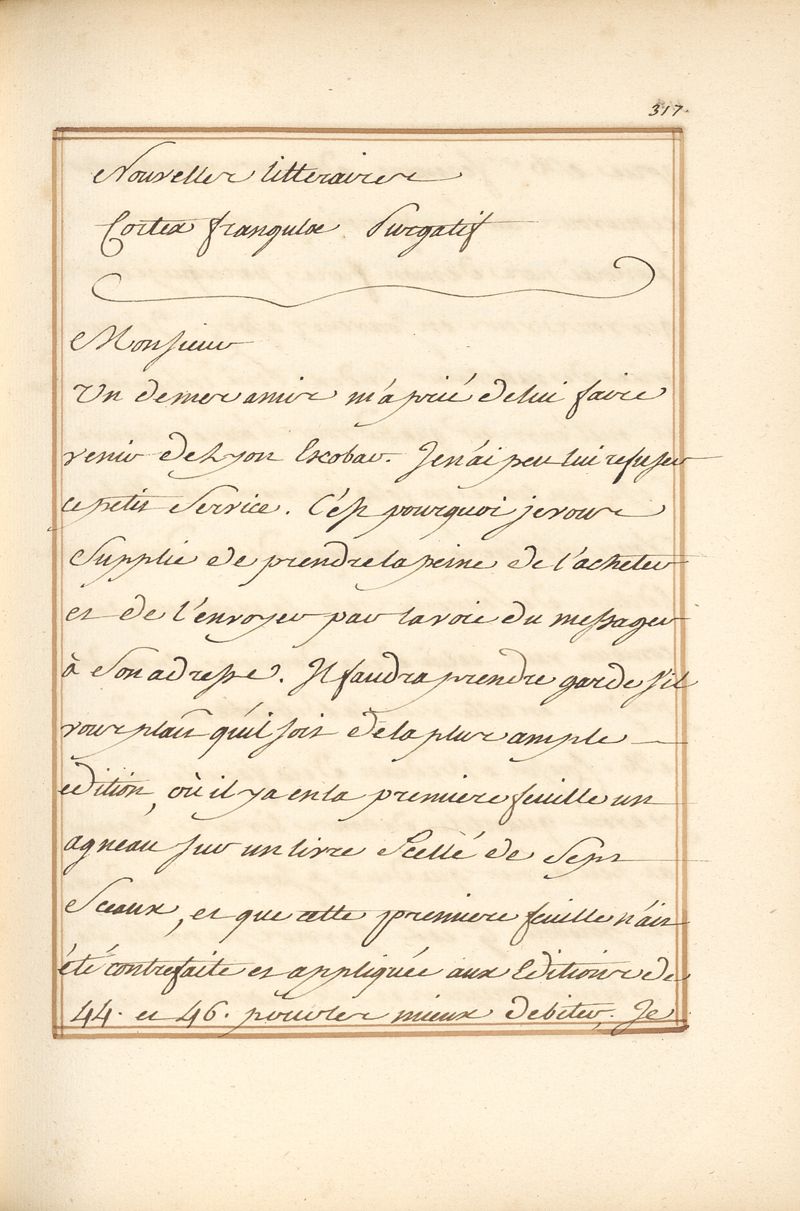 317.
Nouvelles litteraires
Cortex frangulæ Purgatif
Monsieur
Un de mes amis m'a prié de lui faire
venir de Lyon Escobar. Je n'ai peu lui refuser
ce petit Service. C'est pourquoi je vous
Supplie de prendre la peine de l'acheter
et de l'envoyer par la voie du messager
à Son adresse. Il faudra prendre garde s'il
vous plait qu'il soit de la plus ample
edition, où il y a en la premiere feuille un
agneau sur un livre Scellé de Sept
Sceaux, et que cette premiere feuille n'ait
été contrefaite et appliquée aux Editions de
44. et 46. pour les mieux debiter. Je